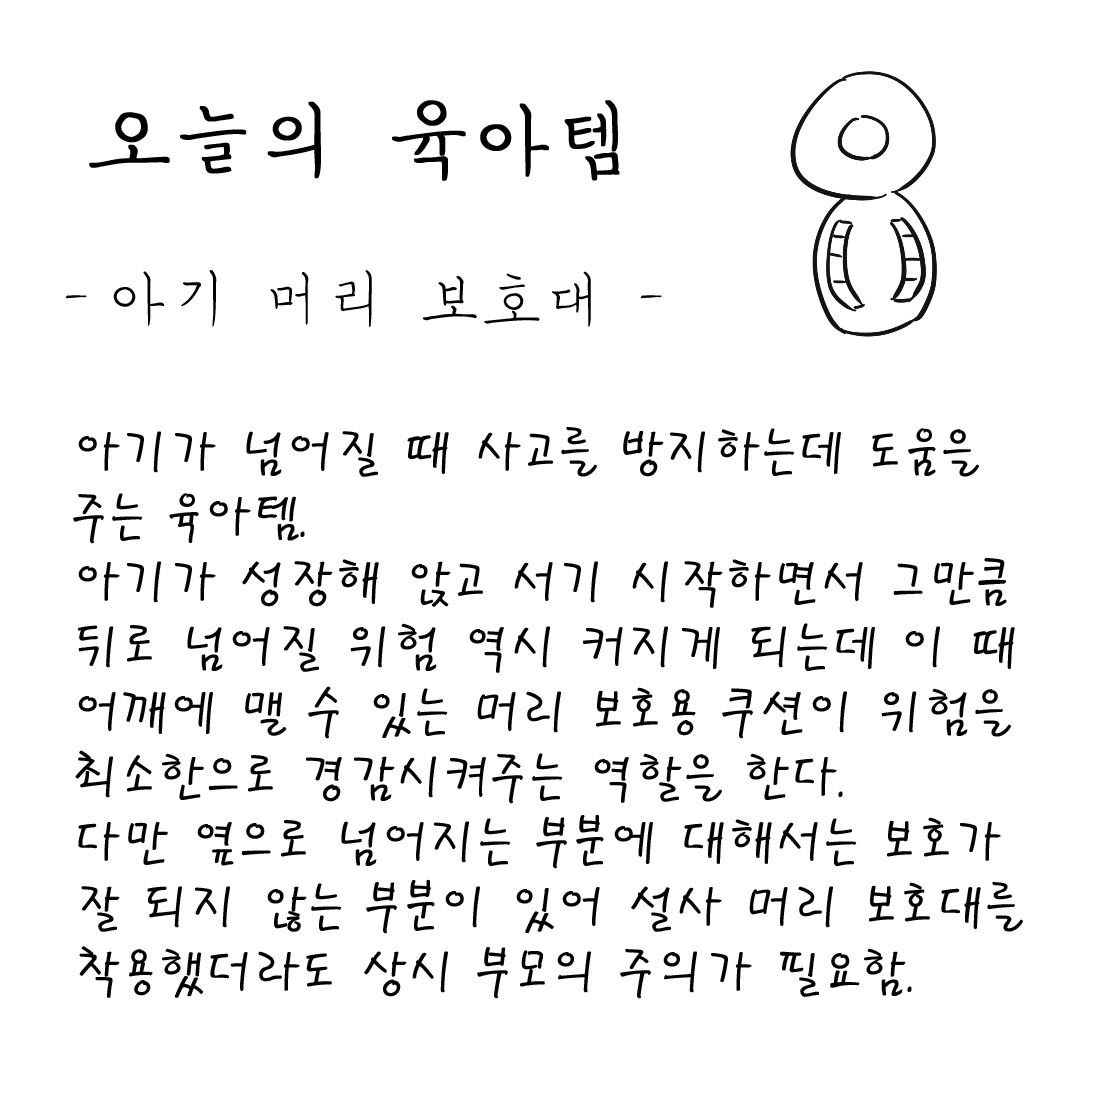 오늘의 육아템
- 아기 머리 보호대 -
아기가 넘어질 때 사고를 방지하는데 도움을
주는 육아템.
아기가 성장해 앉고 서기 시작하면서 그만큼
뒤로 넘어질 위험 역시 커지게 되는데 이 때
어깨에 맬 수 있는 머리 보호용 쿠션이 위험을
최소한으로 경감시켜주는 역할을 한다.
다만 옆으로 넘어지는 부분에 대해서는 보호가
잘 되지 않는 부분이 있어 설사 머리 보호대를
착용했더라도 상시 부모의 주의가 필요함.